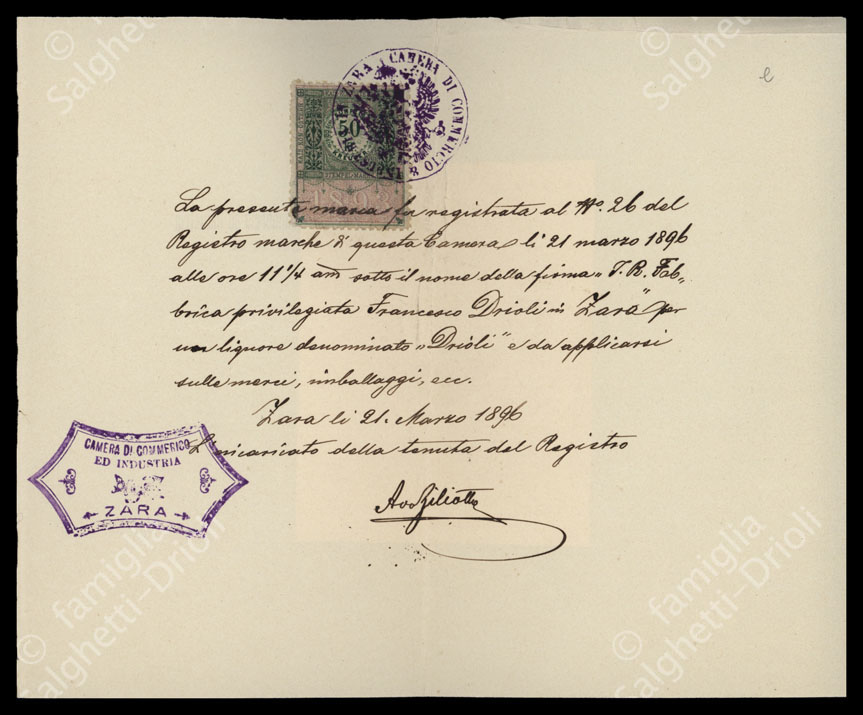 © famiglia
Salghetti-Drioli
e
ZARA CAMERA DI COMMERCIO
50
1893
La presente marca fu registrata al No. 26 del
Registro marche di questa Camera li 21 marzo 1896
alle ore 11 1/4 am sotto il nome della firma „I. R. Fab„
brica privilegiata Francesco Drioli in Zara" per
un liquore denominato „Drioli" e da applicarsi
sulle merci, imballaggi, ecc.
Zara li 21. Marzo 1896
L'incaricato della tenuta del Registro
CAMERA DI COMMERICO
ED INDUSTRIA
ZARA
Ziliotto
© famiglia
Salghetti-Drioli
© famiglia
Salghetti-Drioli